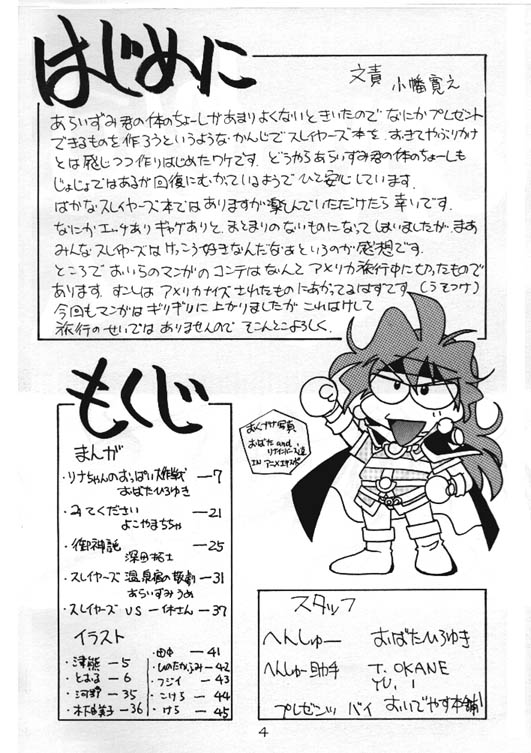 はじめに
文責 小幡寛之
あらいずみ君の体のちょーしがあまりよくないときいたので なにかプレゼント
できるものを作ろうというような かんじで スレイヤーズ本を、おきてやぶりかけ
とは感じつつ作りはじめたワケです。どうやらあらいずみ君の体のちょーしも
じょじょではあるが回復にむかっているようで ひと安心しています。
ばかなスレイヤーズ本ではありますが楽しんでいただけたら幸いです。
なにか エッチあり ギャグありと、まとまりのないものになってしまいましたが、まあ
みんなスレイヤーズはけっこう好きなんだなぁというのが感想です。
ところで おいらのマンガのコンテは なんと アメリカ旅行中に切ったもので
あります。すこしは アメリカナイズされたものにあがってるはずです(うそつけ)
今回もマンガはギリギリに上がりましたが これはけして
旅行のせいでは ありませんので そこんとこよろしく。
もくじ
まんが
・リナちゃんのおっぱい大作戦 —7
おばたひろゆき
・みてください —21
よこやまちちゃ
・御神託 —25
深田拓士
・スレイヤーズ 温泉宿の惨劇 —31
あらいずみうめ
・スレイヤーズ VS 一休さん —37
イラスト
・津熊 —5
・とおる —6
・河野 —35
・木下由美子 —36
・田中 —41
・ひのたかふみ —42
・フジイ —43
・こけら —44
・けら —45
おくづけ写真
おばた and
リナインバース達
IN アニメエキスポ
スタッフ
へんしゅー おばたひろゆき
へんしゅー助手 T.OKANE
プレゼンツ バイ おいでやす本舗
4